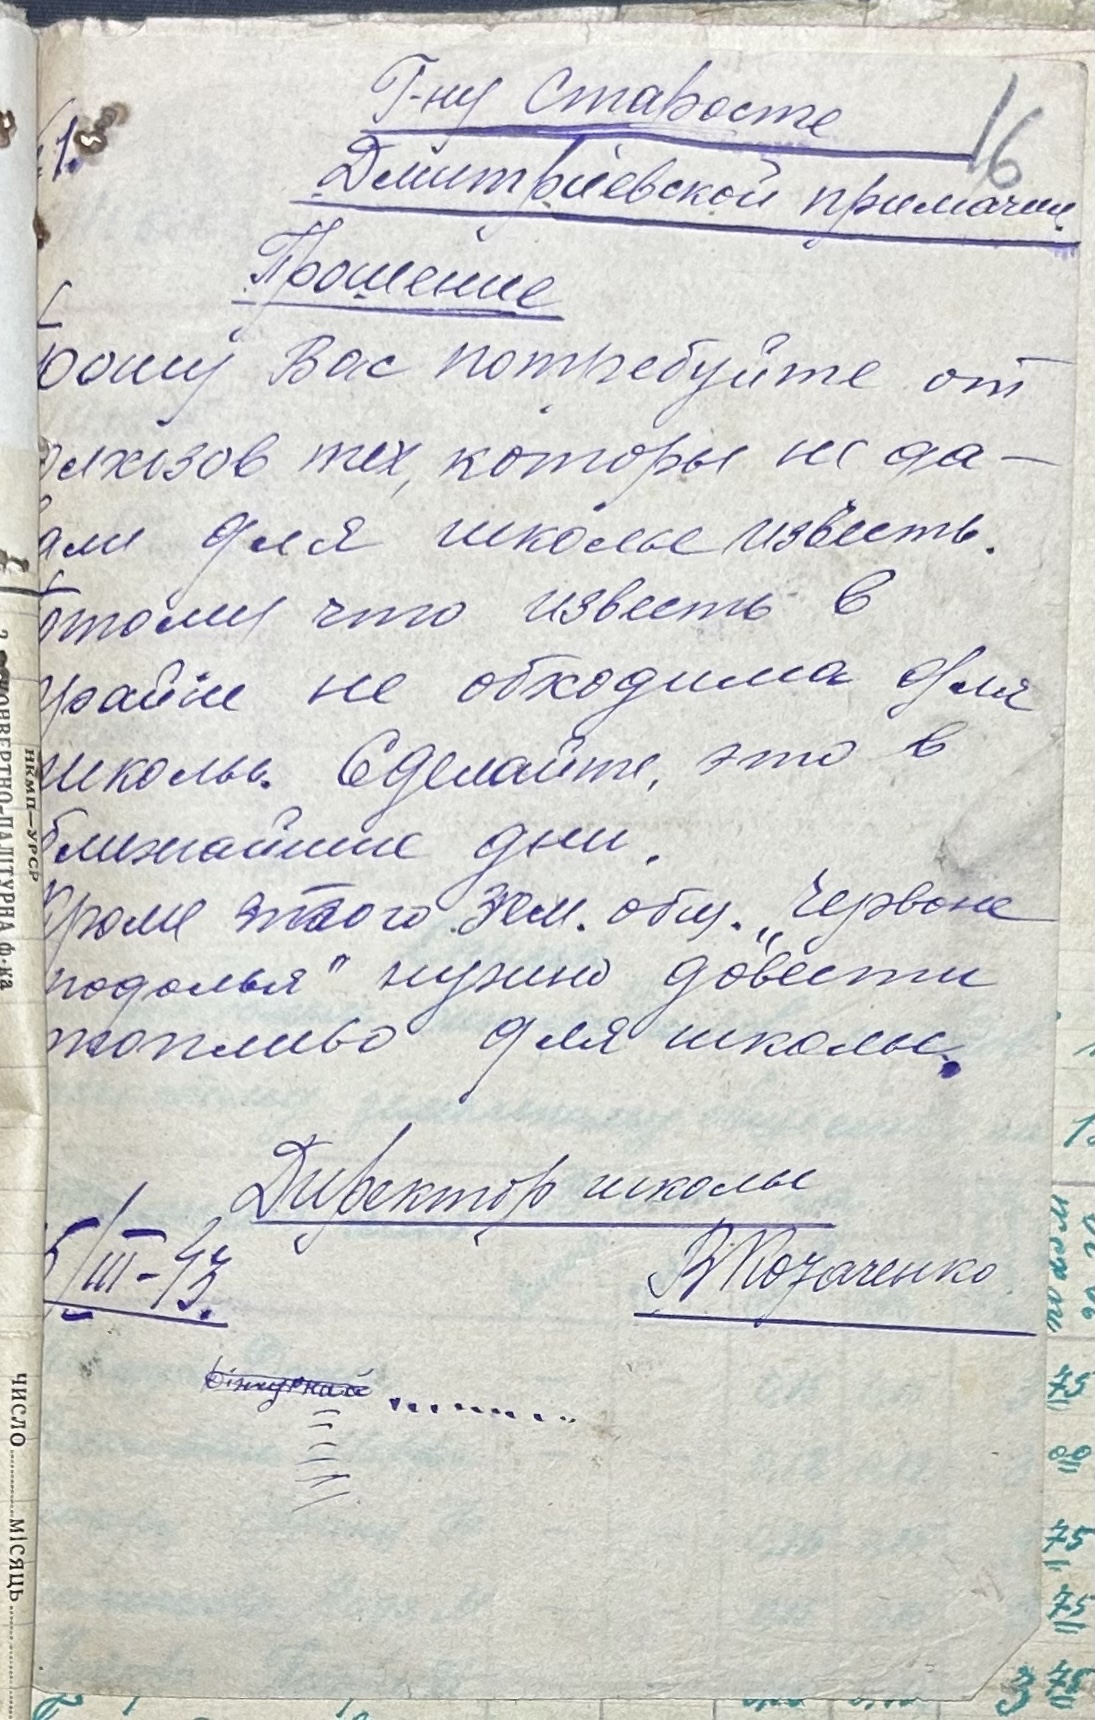 Г-ну Старосте
16
1.
Дмитріевской примачии
Прошение
рошу Вас потребуйте от
олхозов тех, которы не да-
вали для школы известь.
отому что известь в
крайне не обходима для
школы. Сделайте, это в
ближайшие дни.
Кроме этого зем. общ. „Червоне
подолья" нужно довести
топливо для школы.
Директор школы
5/III-43.
В Козаченко
НКМП—УРСР
КОНВЕРТНО-ПАЛІТУРНА Ф-КА
ЧИСЛО
МІСЯЦЬ
75
75
75